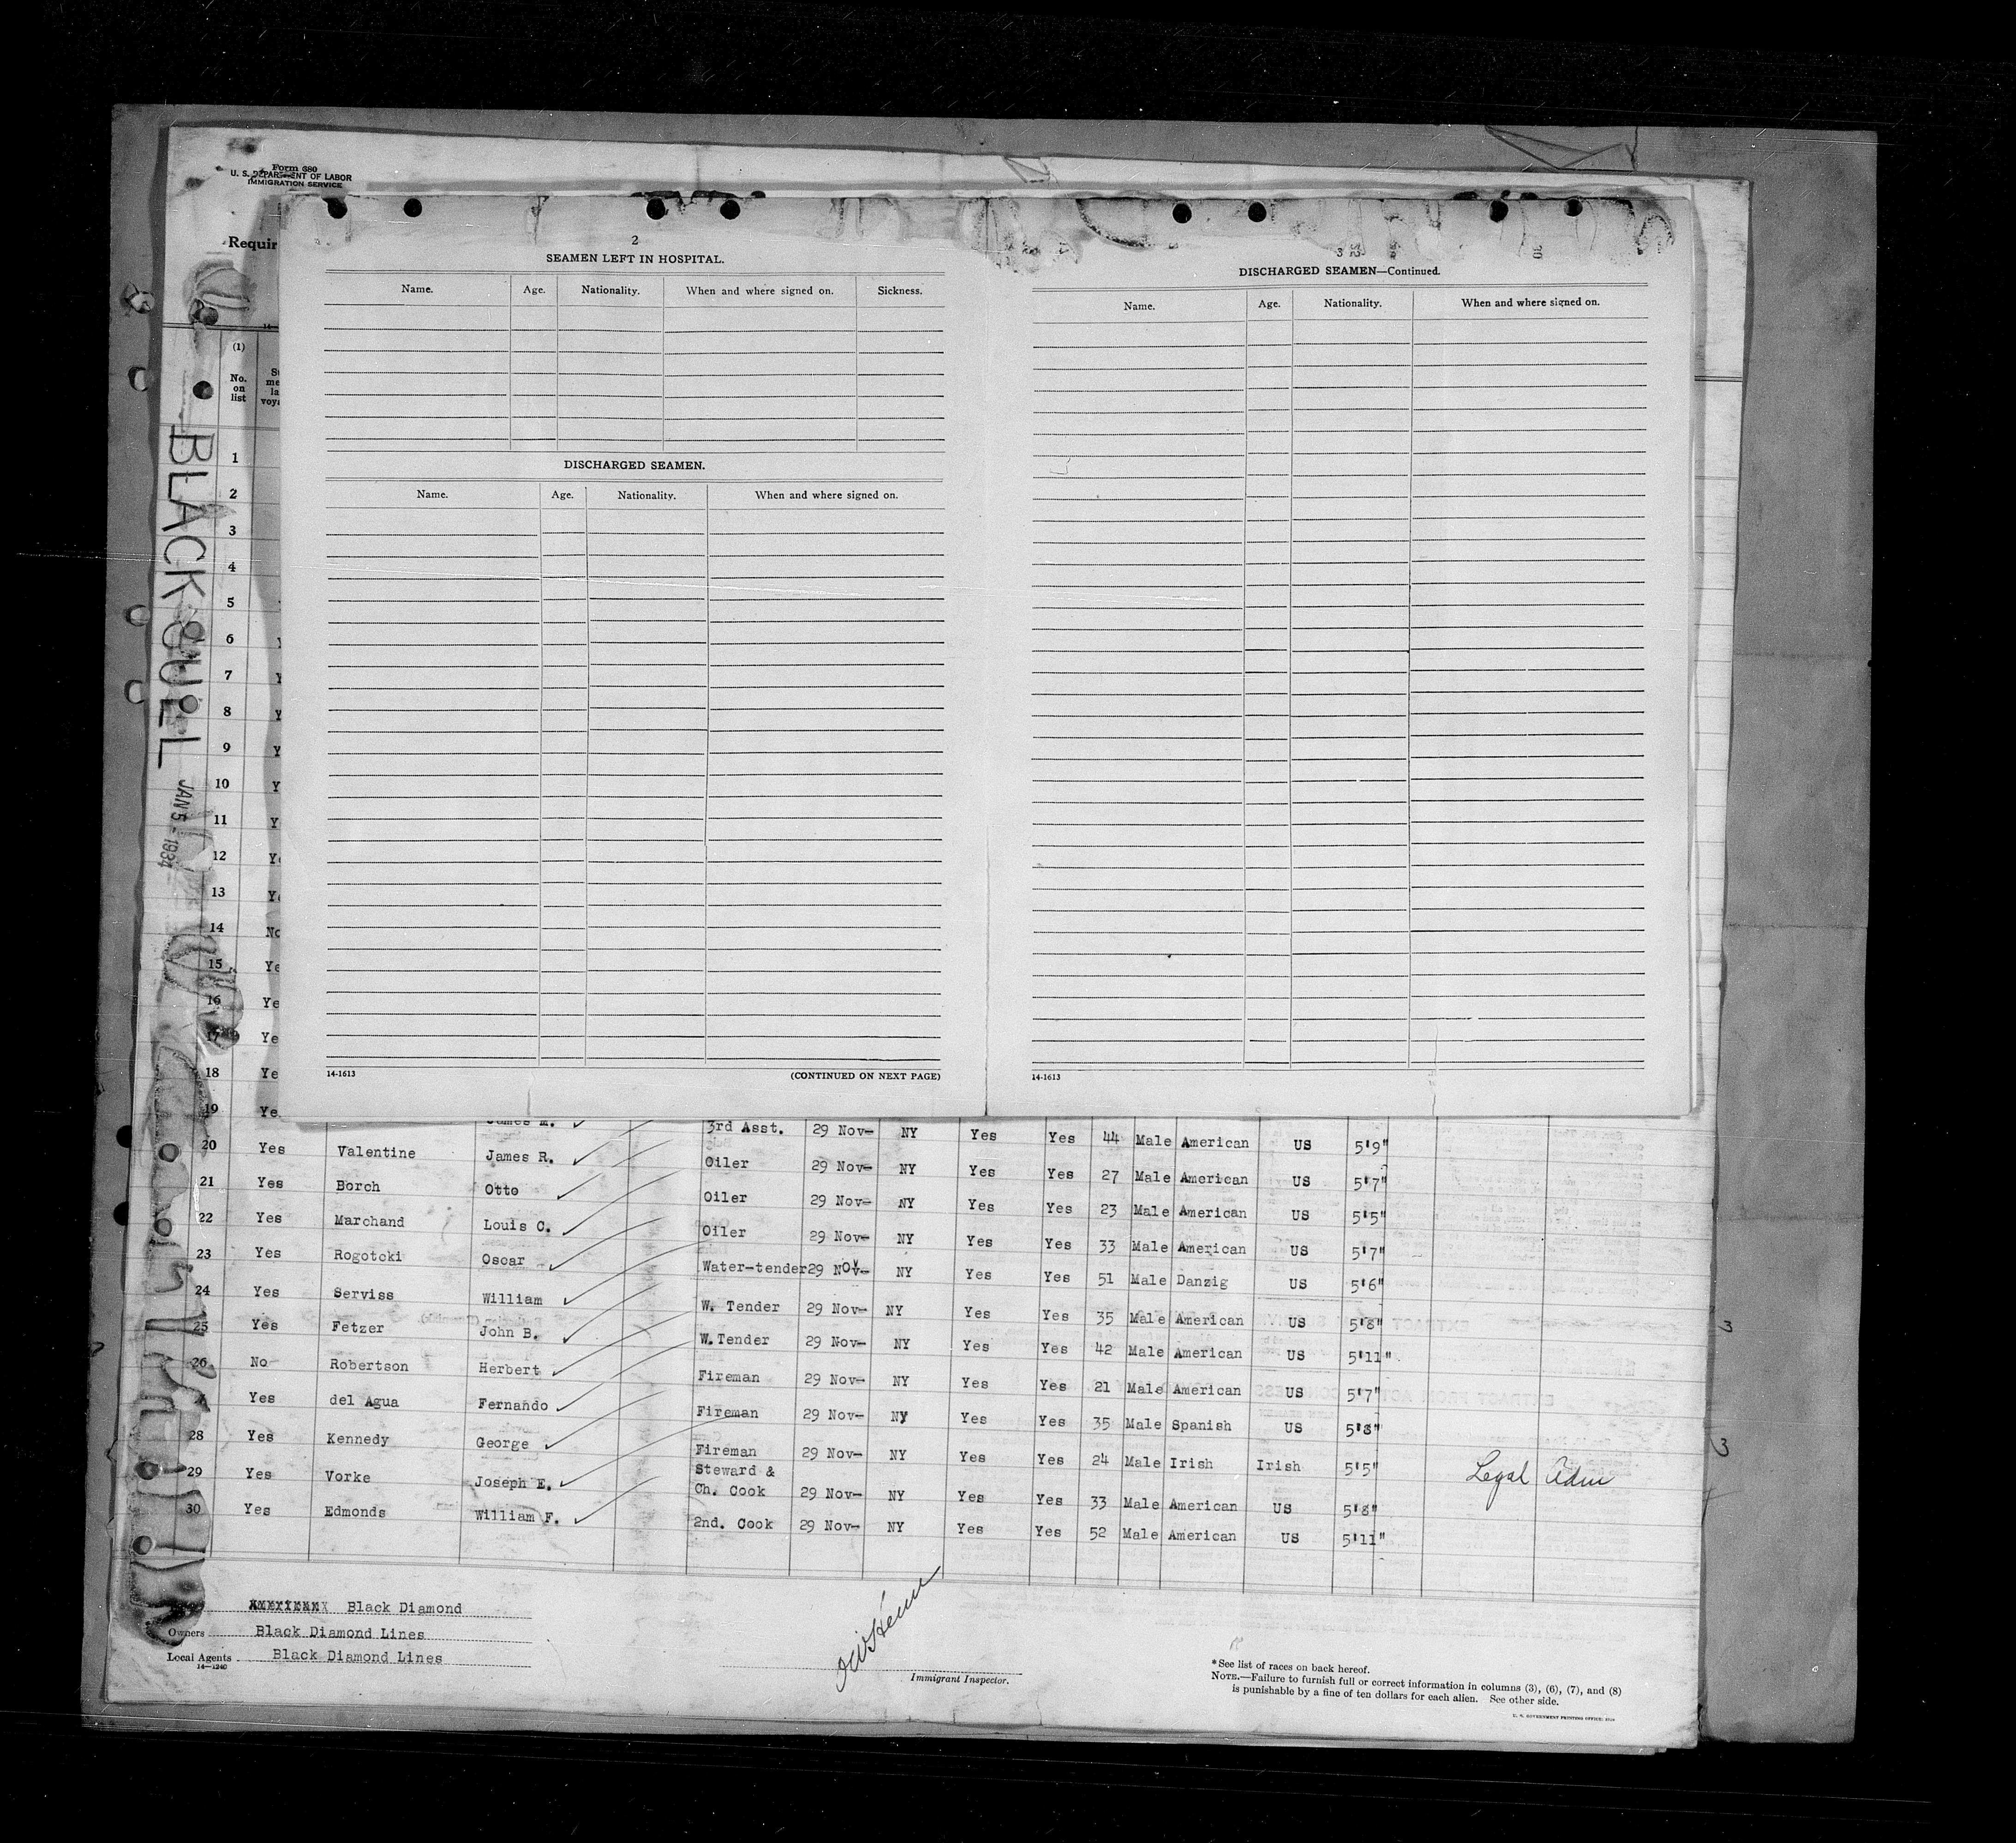 Form 680
U. S. DEPARTMENT OF LABOR
IMMIGRATION SERVICE
Requir
2
SEAMEN LEFT IN HOSPITAL.
Name. Age. Nationality. When and where signed on. Sickness.
DISCHARGED SEAMEN.
Name. Age. Nationality. When and where signed on.
14-1613 (CONTINUED ON NEXT PAGE)
3
DISCHARGED SEAMEN—Continued.
Name. Age. Nationality. When and where signed on.
14-1613
(1)
No.
on
list
BLACK GULL
JAN 5 - 1934
1
2
3
4
5
6
7
8
9
10
11
12
13
14
15
16
17
18
19
James M. 3rd Asst. 29 Nov- NY Yes Yes 44 Male American US 5'9"
20 Yes Valentine James R. Oiler 29 Nov- NY Yes Yes 27 Male American US 5'7"
21 Yes Borch Otto Oiler 29 Nov- NY Yes Yes 23 Male American US 5'5"
22 Yes Marchand Louis C. Oiler 29 Nov- NY Yes Yes 33 Male American US 5'7"
23 Yes Rogotcki Oscar Water-tender 29 Nov- NY Yes Yes 51 Male Danzig US 5'6"
24 Yes Serviss William W. Tender 29 Nov- NY Yes Yes 35 Male American US 5'8"
25 Yes Fetzer John B. W.Tender 29 Nov- NY Yes Yes 42 Male American US 5'11"
26 No Robertson Herbert Fireman 29 Nov- NY Yes Yes 21 Male American US 5'7"
Yes del Agua Fernando Fireman 29 Nov- NY Yes Yes 35 Male Spanish US 5'8"
28 Yes Kennedy George Fireman 29 Nov- NY Yes Yes 24 Male Irish Irish 5'5" Legal Adm
29 Yes Vorke Joseph E. Steward & Ch. Cook 29 Nov- NY Yes Yes 33 Male American US 5'8"
30 Yes Edmonds William F. 2nd. Cook 29 Nov- NY Yes Yes 52 Male American US 5'11"
Black Diamond
Owners Black Diamond Lines
Local Agents Black Diamond Lines
14—1240
Immigrant Inspector.
*See list of races on back hereof.
NOTE.—Failure to furnish full or correct information in columns (3), (6), (7), and (8)
is punishable by a fine of ten dollars for each alien. See other side.